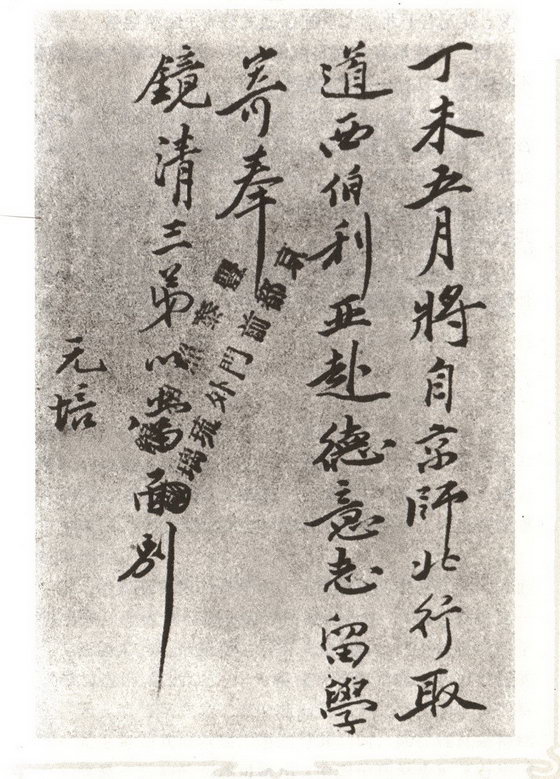 丁未五月將自京師北行取
道西伯利亞赴德意志留學
寄奉
鏡清三弟以當面別
元培
京都前門外琉璃
豐泰照